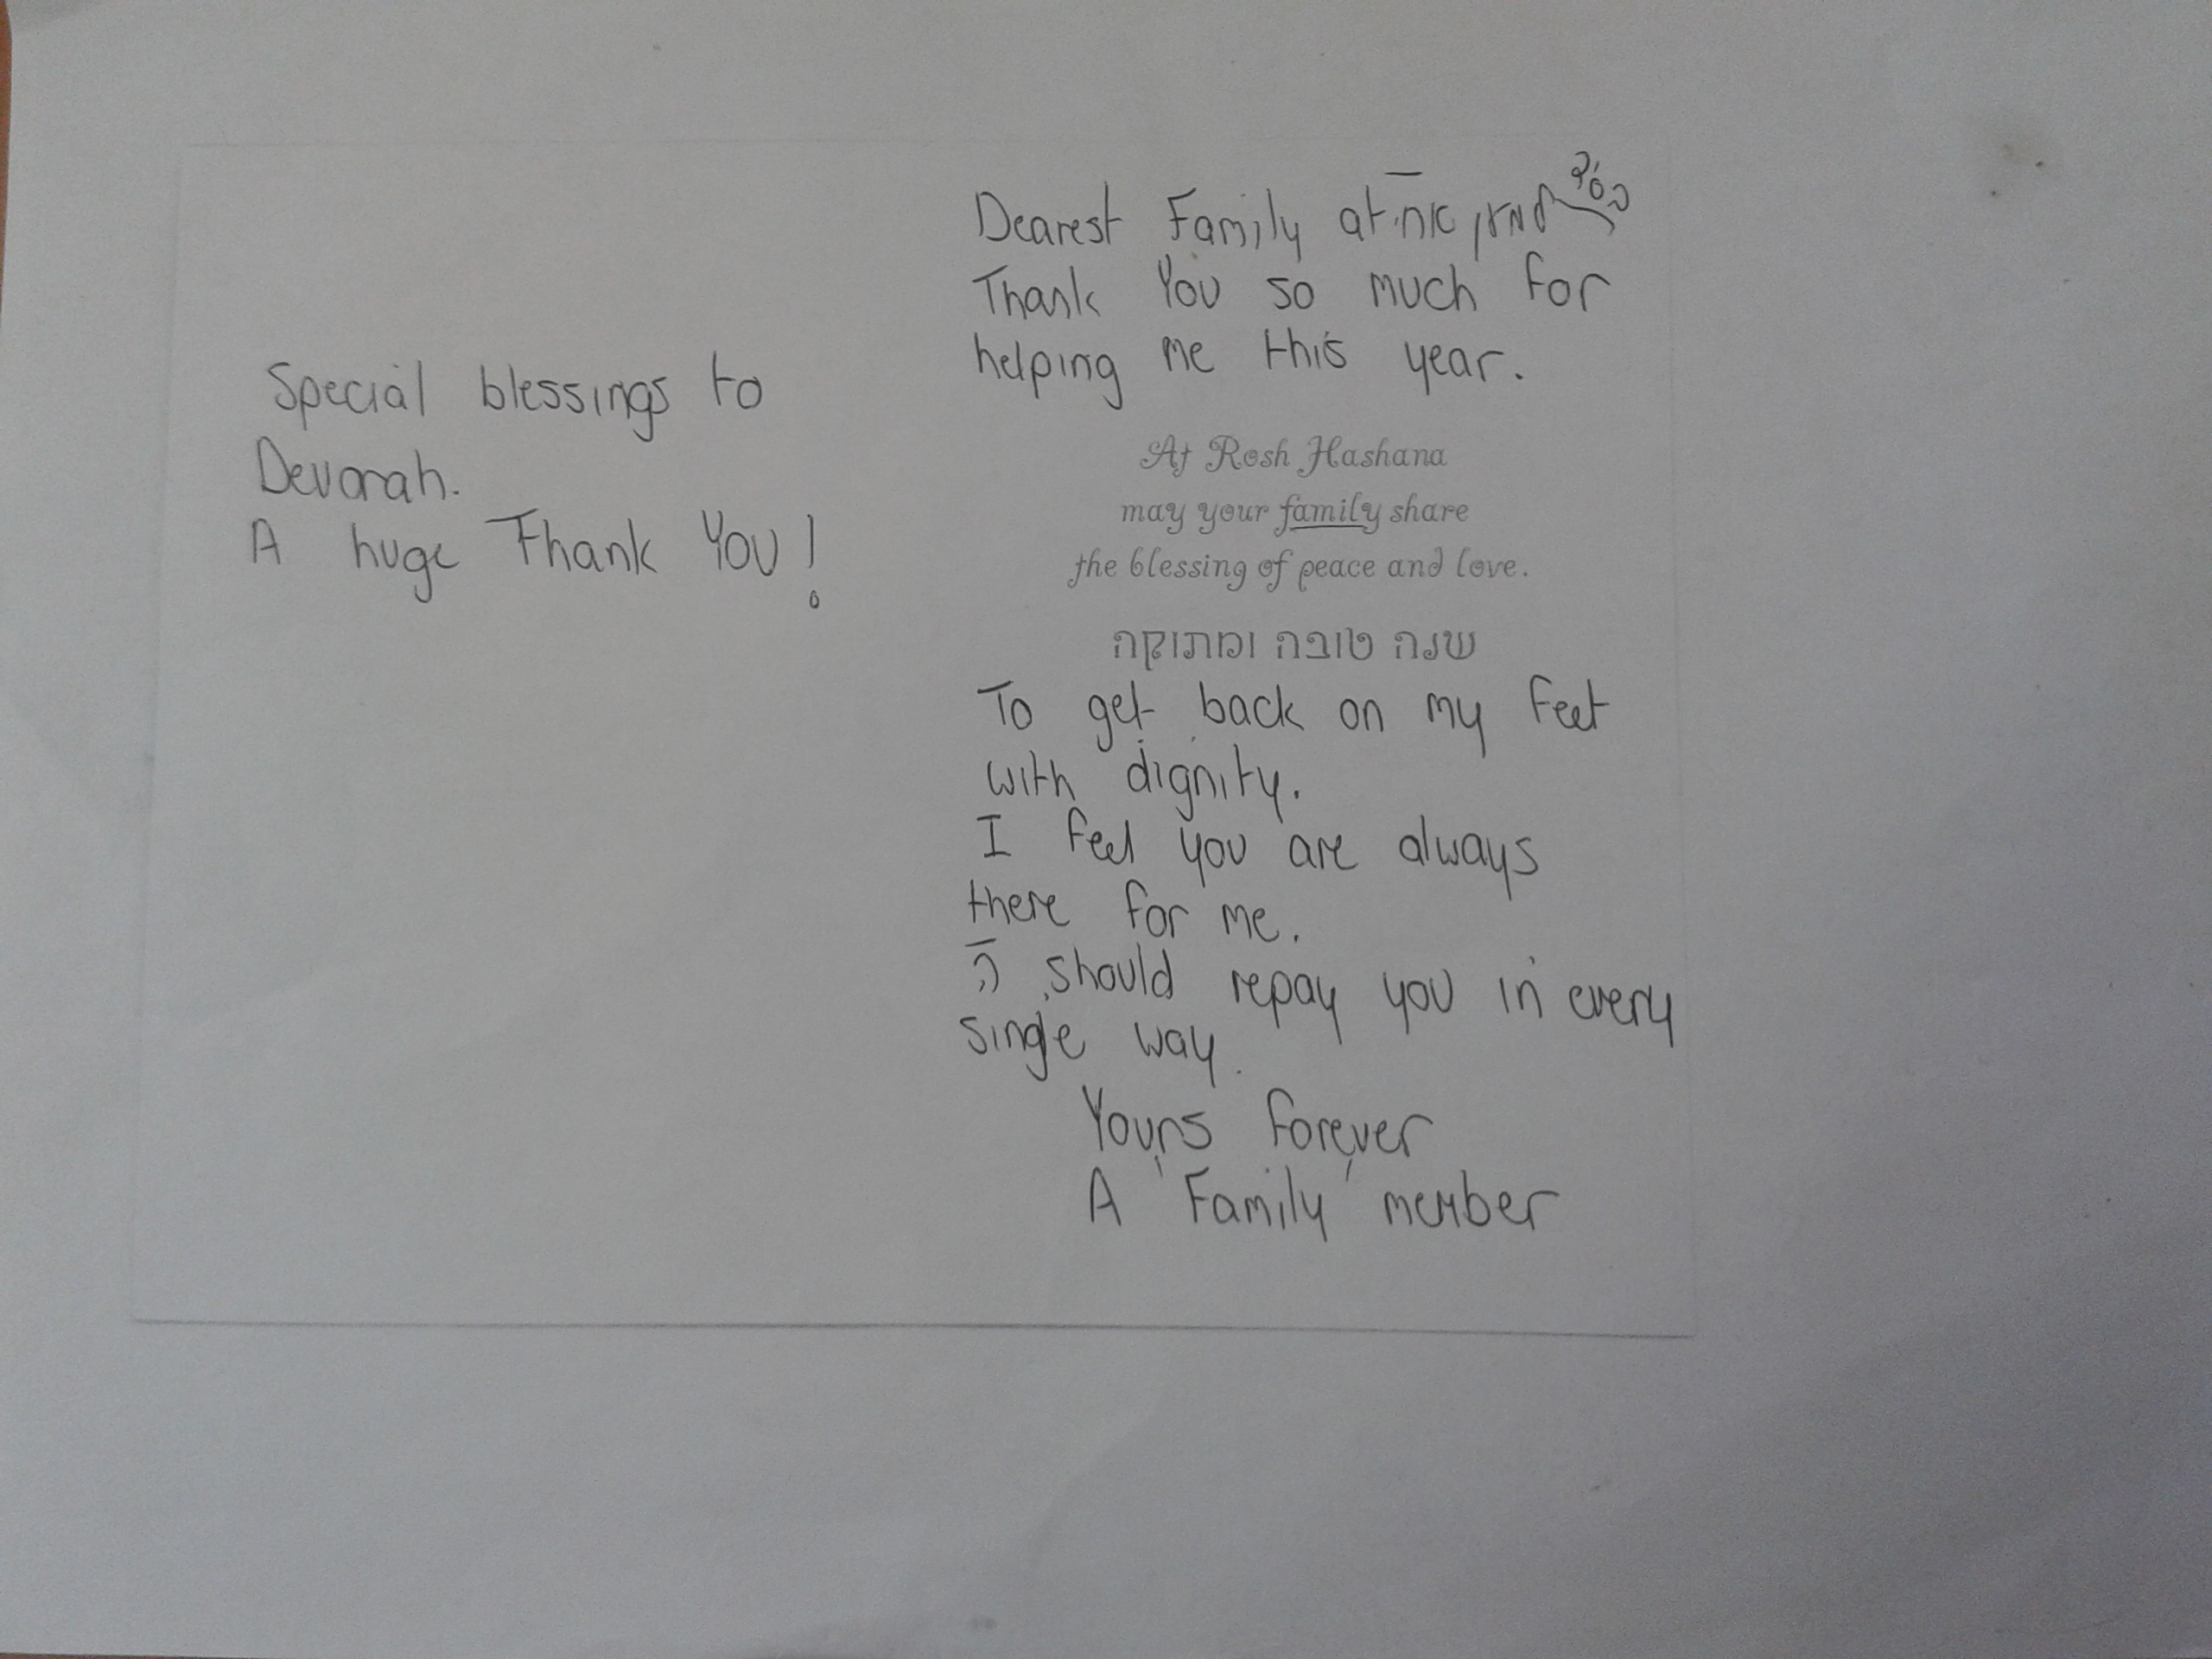 Special blessings to
Devorah.
A huge Thank You!
Dearest Family at
Thank You so much for
helping me this year.
At Rosh Hashana
may your family share
the blessing of peace and love.
שנה טובה ומתוקה
To get back on my feet
with dignity.
I feel you are always
there for me.
ה' should repay you in every
single way.
Yours forever
A Family member